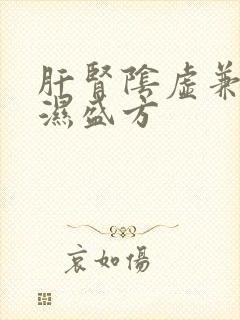 肝腎陰虛兼
濕盛方
哀如傷